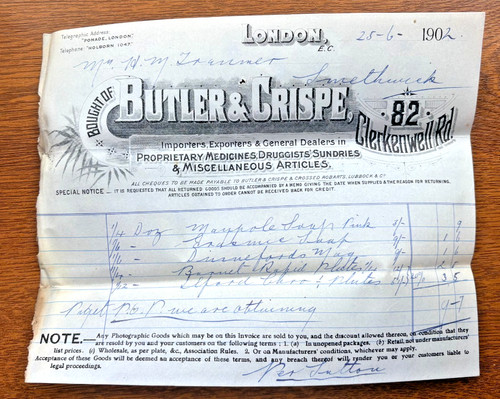 Telegraphic Address
"POMADE, LONDON."
Telephone "HOLBORN 1047."
LONDON, E.C. 25-6-1902.
H. M. Smethwick
BOUGHT OF BUTLER & CRISPE, 82 Clerkenwell Rd.
Importers, Exporters & General Dealers in
PROPRIETARY MEDICINES, DRUGGISTS' SUNDRIES
& MISCELLANEOUS ARTICLES.
ALL CHEQUES TO BE MADE PAYABLE TO BUTLER & CRISPE & CROSSED ROBARTS, LUBBOCK & Co
SPECIAL NOTICE — IT IS REQUESTED THAT ALL RETURNED GOODS SHOULD BE ACCOMPANIED BY A MEMO GIVING THE DATE WHEN SUPPLIED & THE REASON FOR RETURNING.
ARTICLES OBTAINED TO ORDER CANNOT BE RECEIVED BACK FOR CREDIT.
1/4 Doz Maypole Soap Pink 9
Soap
Dinnefords Mag
Barnet Rapid Plates
Ilford Plates 3 5
P.O.P. we are obtaining 9-7
NOTE.—Any Photographic Goods which may be on this Invoice are sold to you, and the discount allowed thereon, on condition that they
are resold by you and your customers on the following terms: 1. (a) In unopened packages. (b) Retail, not under manufacturers'
list prices. (c) Wholesale, as per plate, &c., Association Rules. 2. Or on Manufacturers' conditions, whichever may apply.
Acceptance of these Goods will be deemed an acceptance of these terms, and any breach thereof will render you or your customers liable to
legal proceedings.
Per Sutton